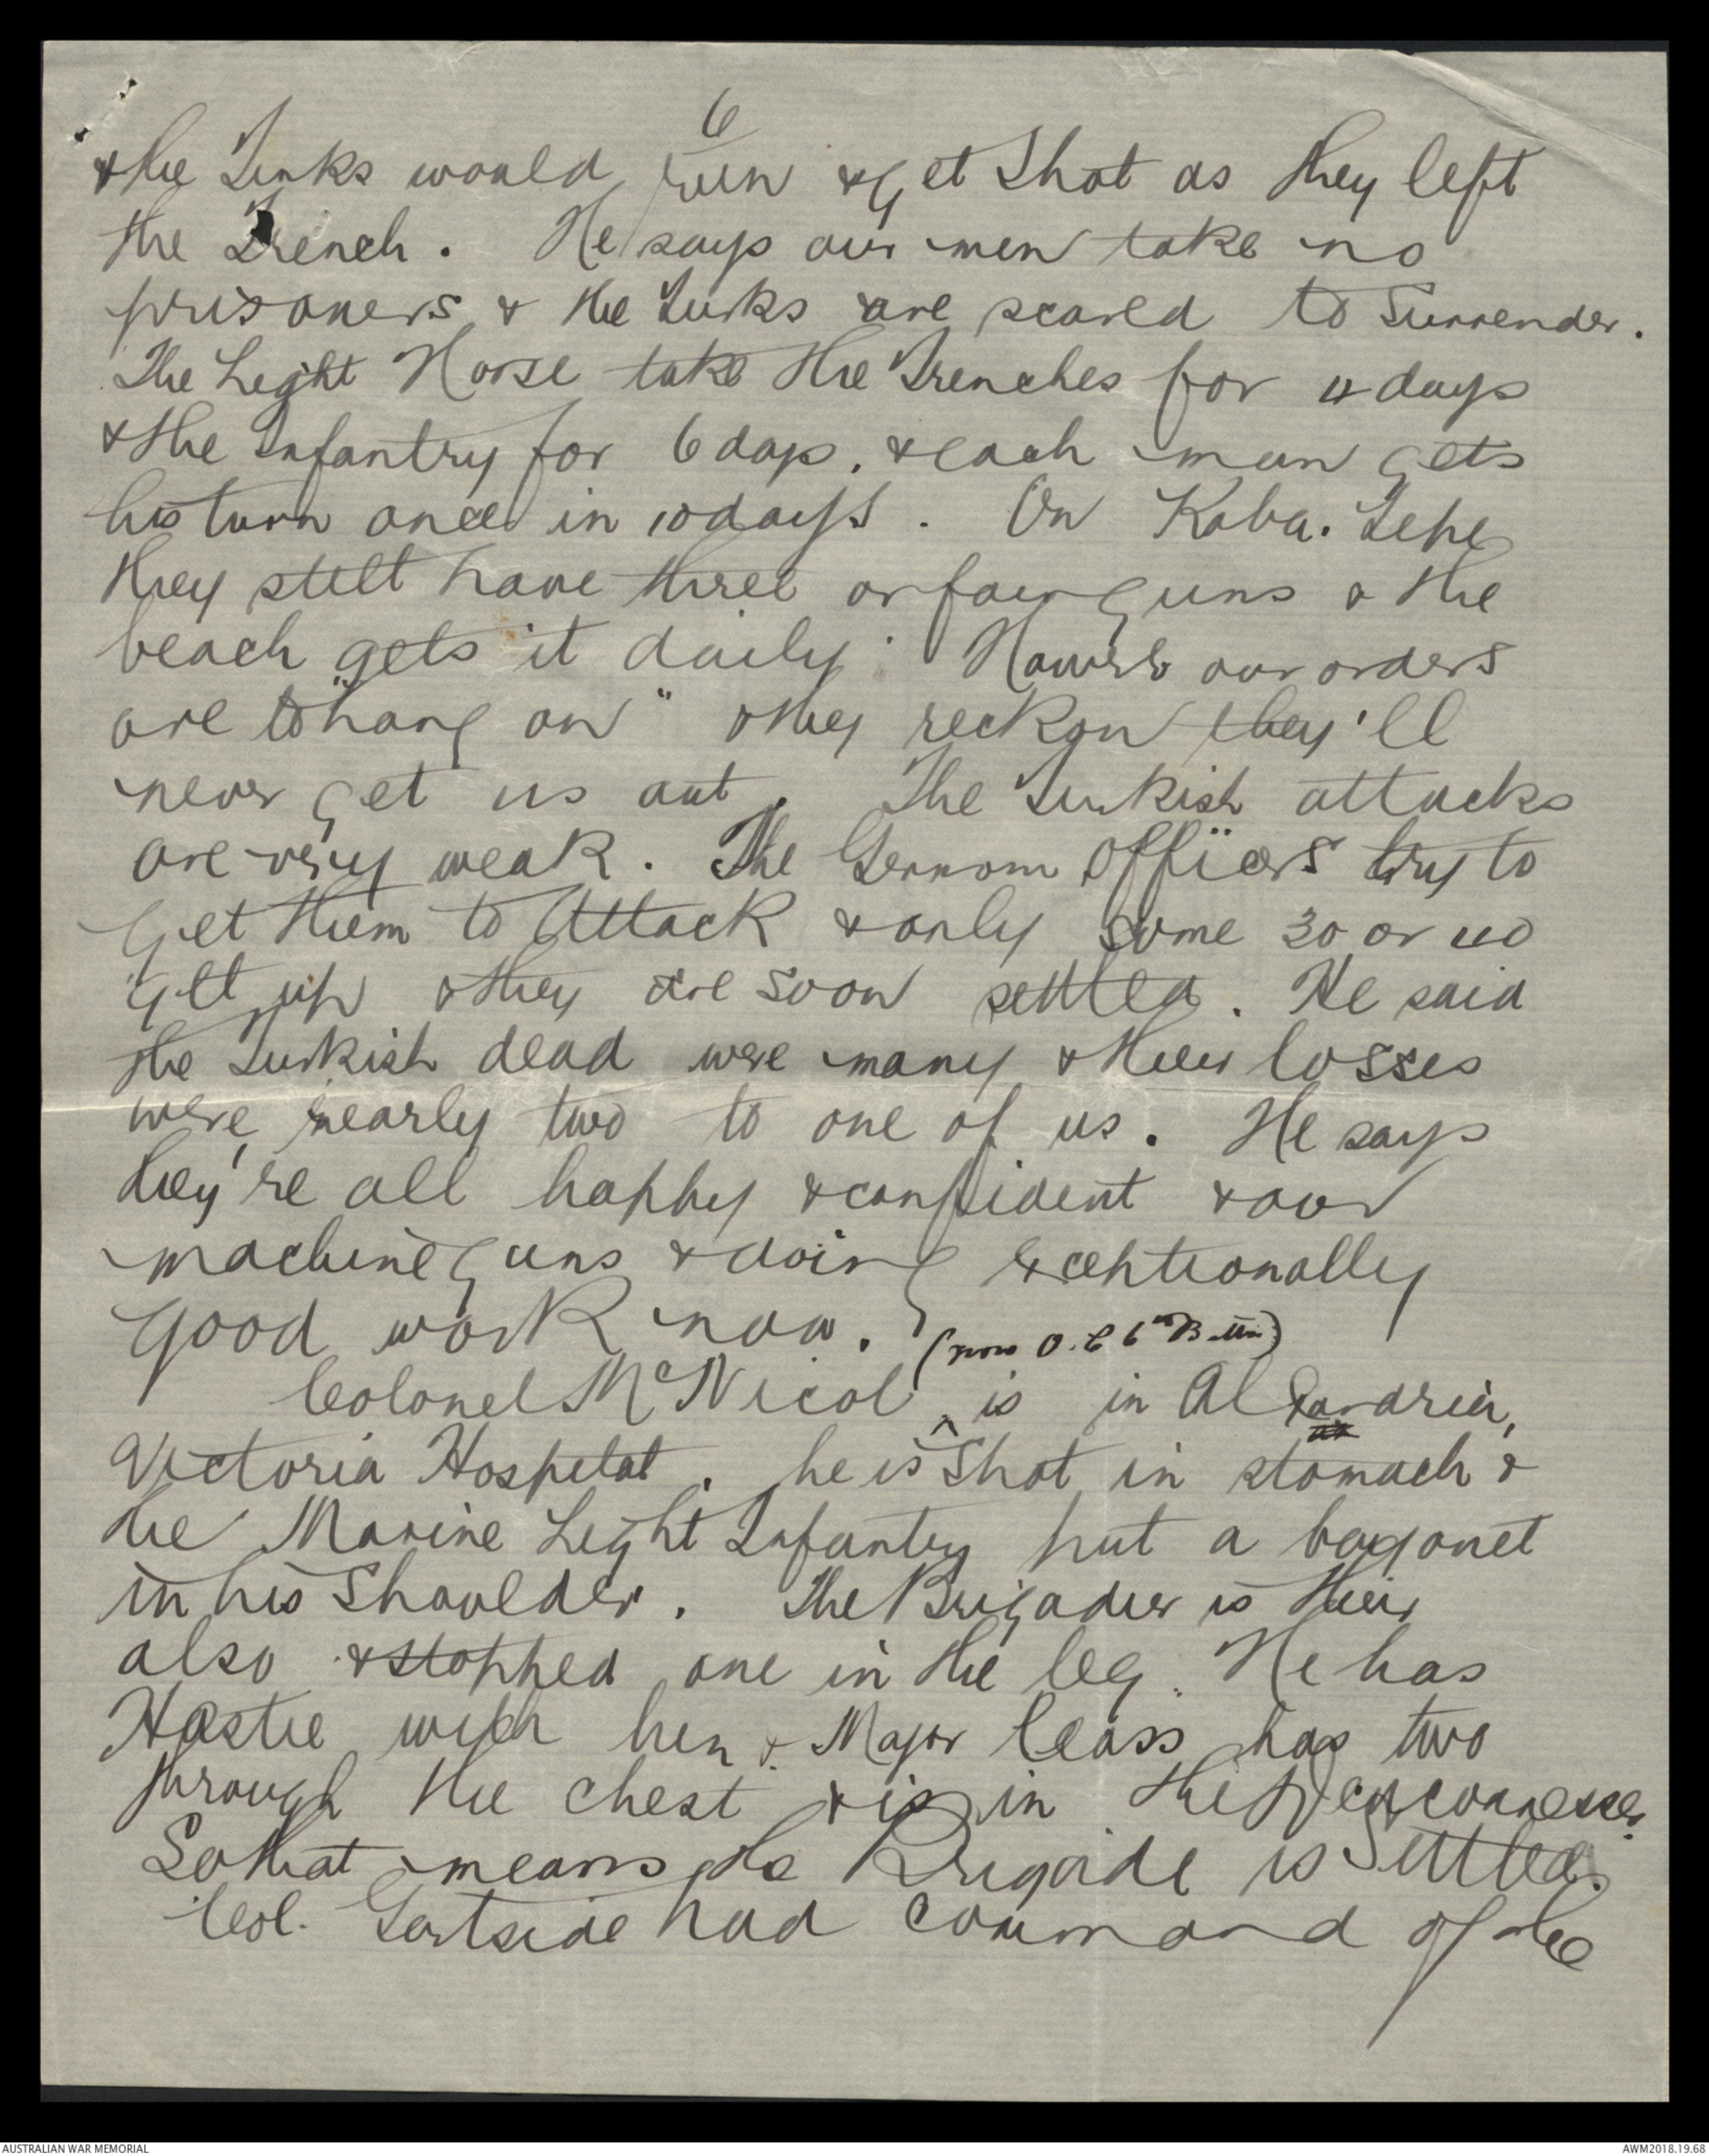 6
& the Turks would run & get shot as they left
the Trench. He says our men take no
prisoners & the Turks are scared to Surrender.
The Light Horse take the Trenches for 4 days
& the Infantry for 6 days, & each man gets
his turn once in 10 days. On Kaba. Tepe
they still have three or four guns & the
beach "gets it daily. However our orders
are to "hang on" & they reckon they'll
never get us out. The Turkish attacks
are very weak. The German officers try to
get them to Attack & only some 30 or 40
get up & they are soon settled. He said
the Turkish dead were many & their losses
were, nearly two to one of us. He says
they're all happy & confident & our
machine guns & doing exceptionally
good work now.
(now O.C 6th Battn)
Colonel McNicol ^ is in Alexandria,
Victoria Hospital. he is shot in stomach &
the Marine Light Infantry put a bayonet
in his Shoulder. The Brigadier is their
also & stopped one in the leg. He has
Hastie with him & Major Cass has two
through the chest & is in the
So that means the Brigade is Settled.
Col. Gartside had command of the
AUSTRALIAN WAR MEMORIAL
AWM2018.19.68